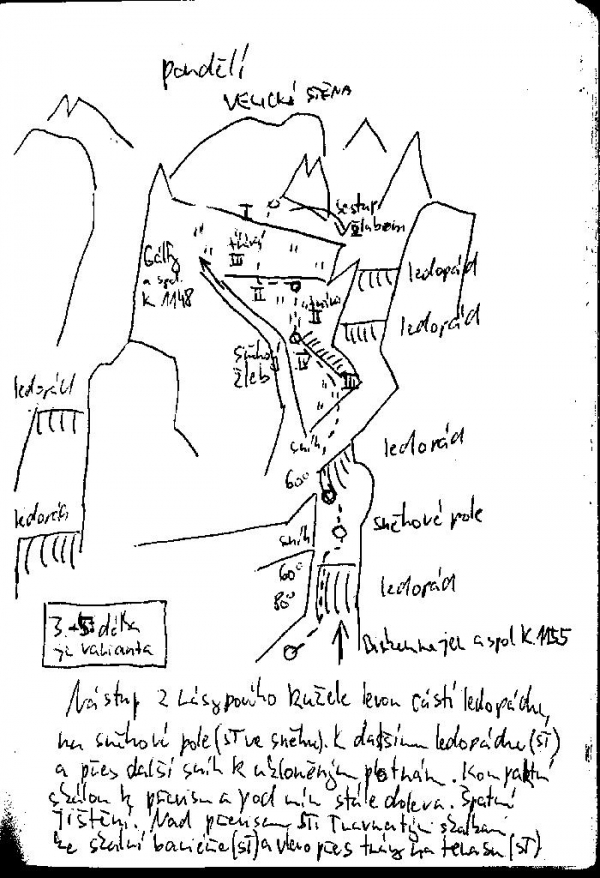 pondělí
VELICKÁ STĚNA
I
sestup
žlabem
trávy
III
Gálfy
a spol.
K. 1148
ledopád
II
III
ledopád
suchý
žleb
IV
III
ledopád
sníh
ledopád
60°
ledopád
sněhové pole
sníh
60°
80°
ledopád
3.-5. délka
je varianta
a spol K. 1155
Nástup z násypového kužele levou částí ledopádu,
na sněhové pole (šť ve sněhu). K dalšímu ledopádu (šť)
a přes další sníh k ukloněným plotnám. Kompaktní
skálou k převisu a pod ním stále doleva. Špatné
jištění. Nad převisem šť. Travnatými skalkami
ke skalní bariéře (šť) a vlevo přes trávy na terasu (šť)